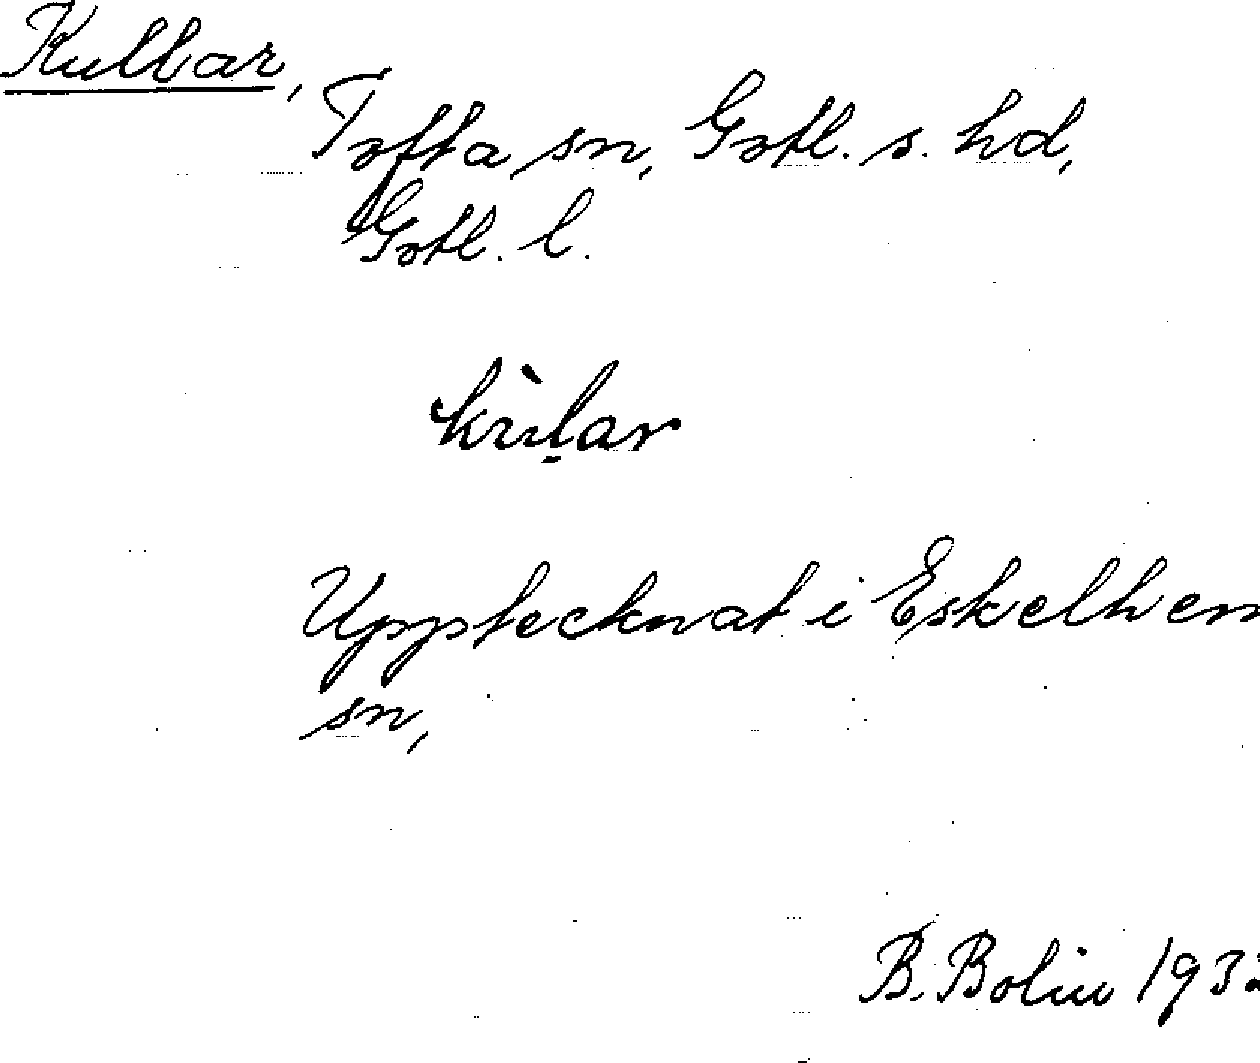 Kullbar,
Tofta sn, Gotl. s. hd,
Gotl. l.
kùḷar
Upptecknat i Eskelhem
sn,
B. Bolin 193